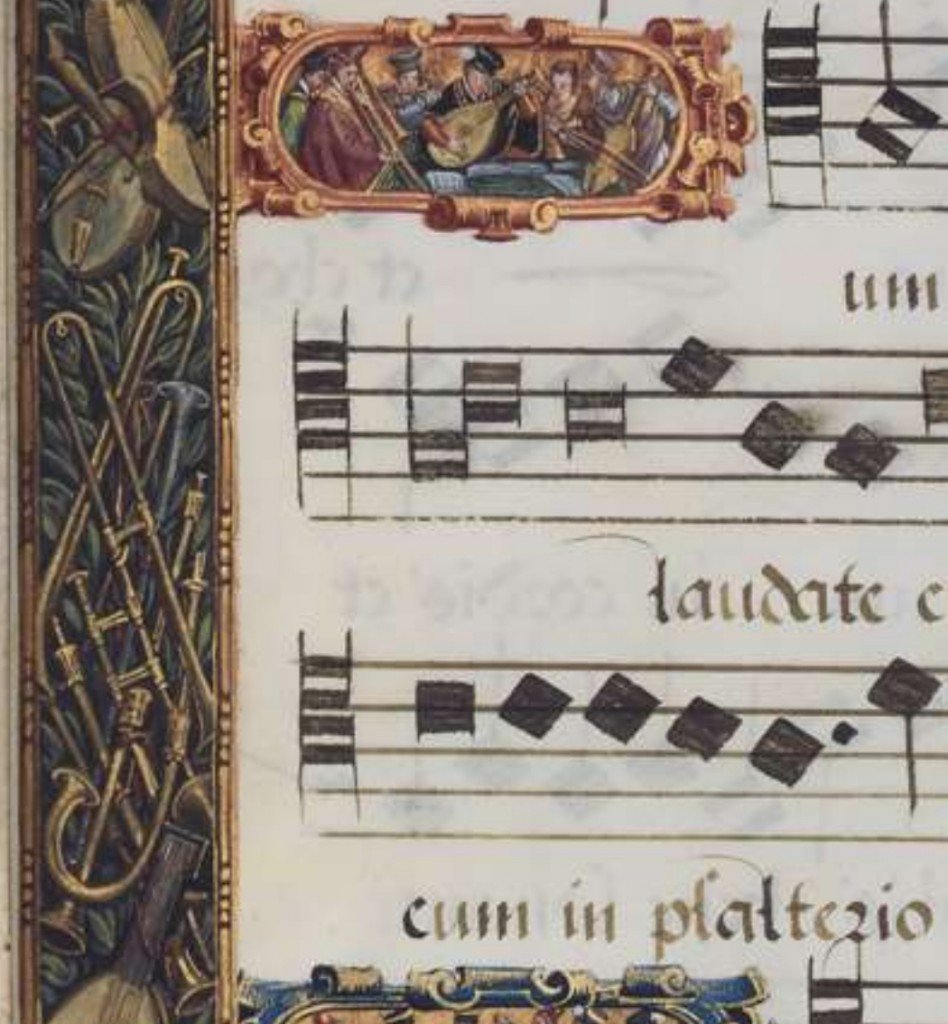 um
laudate e
cum in psalterio